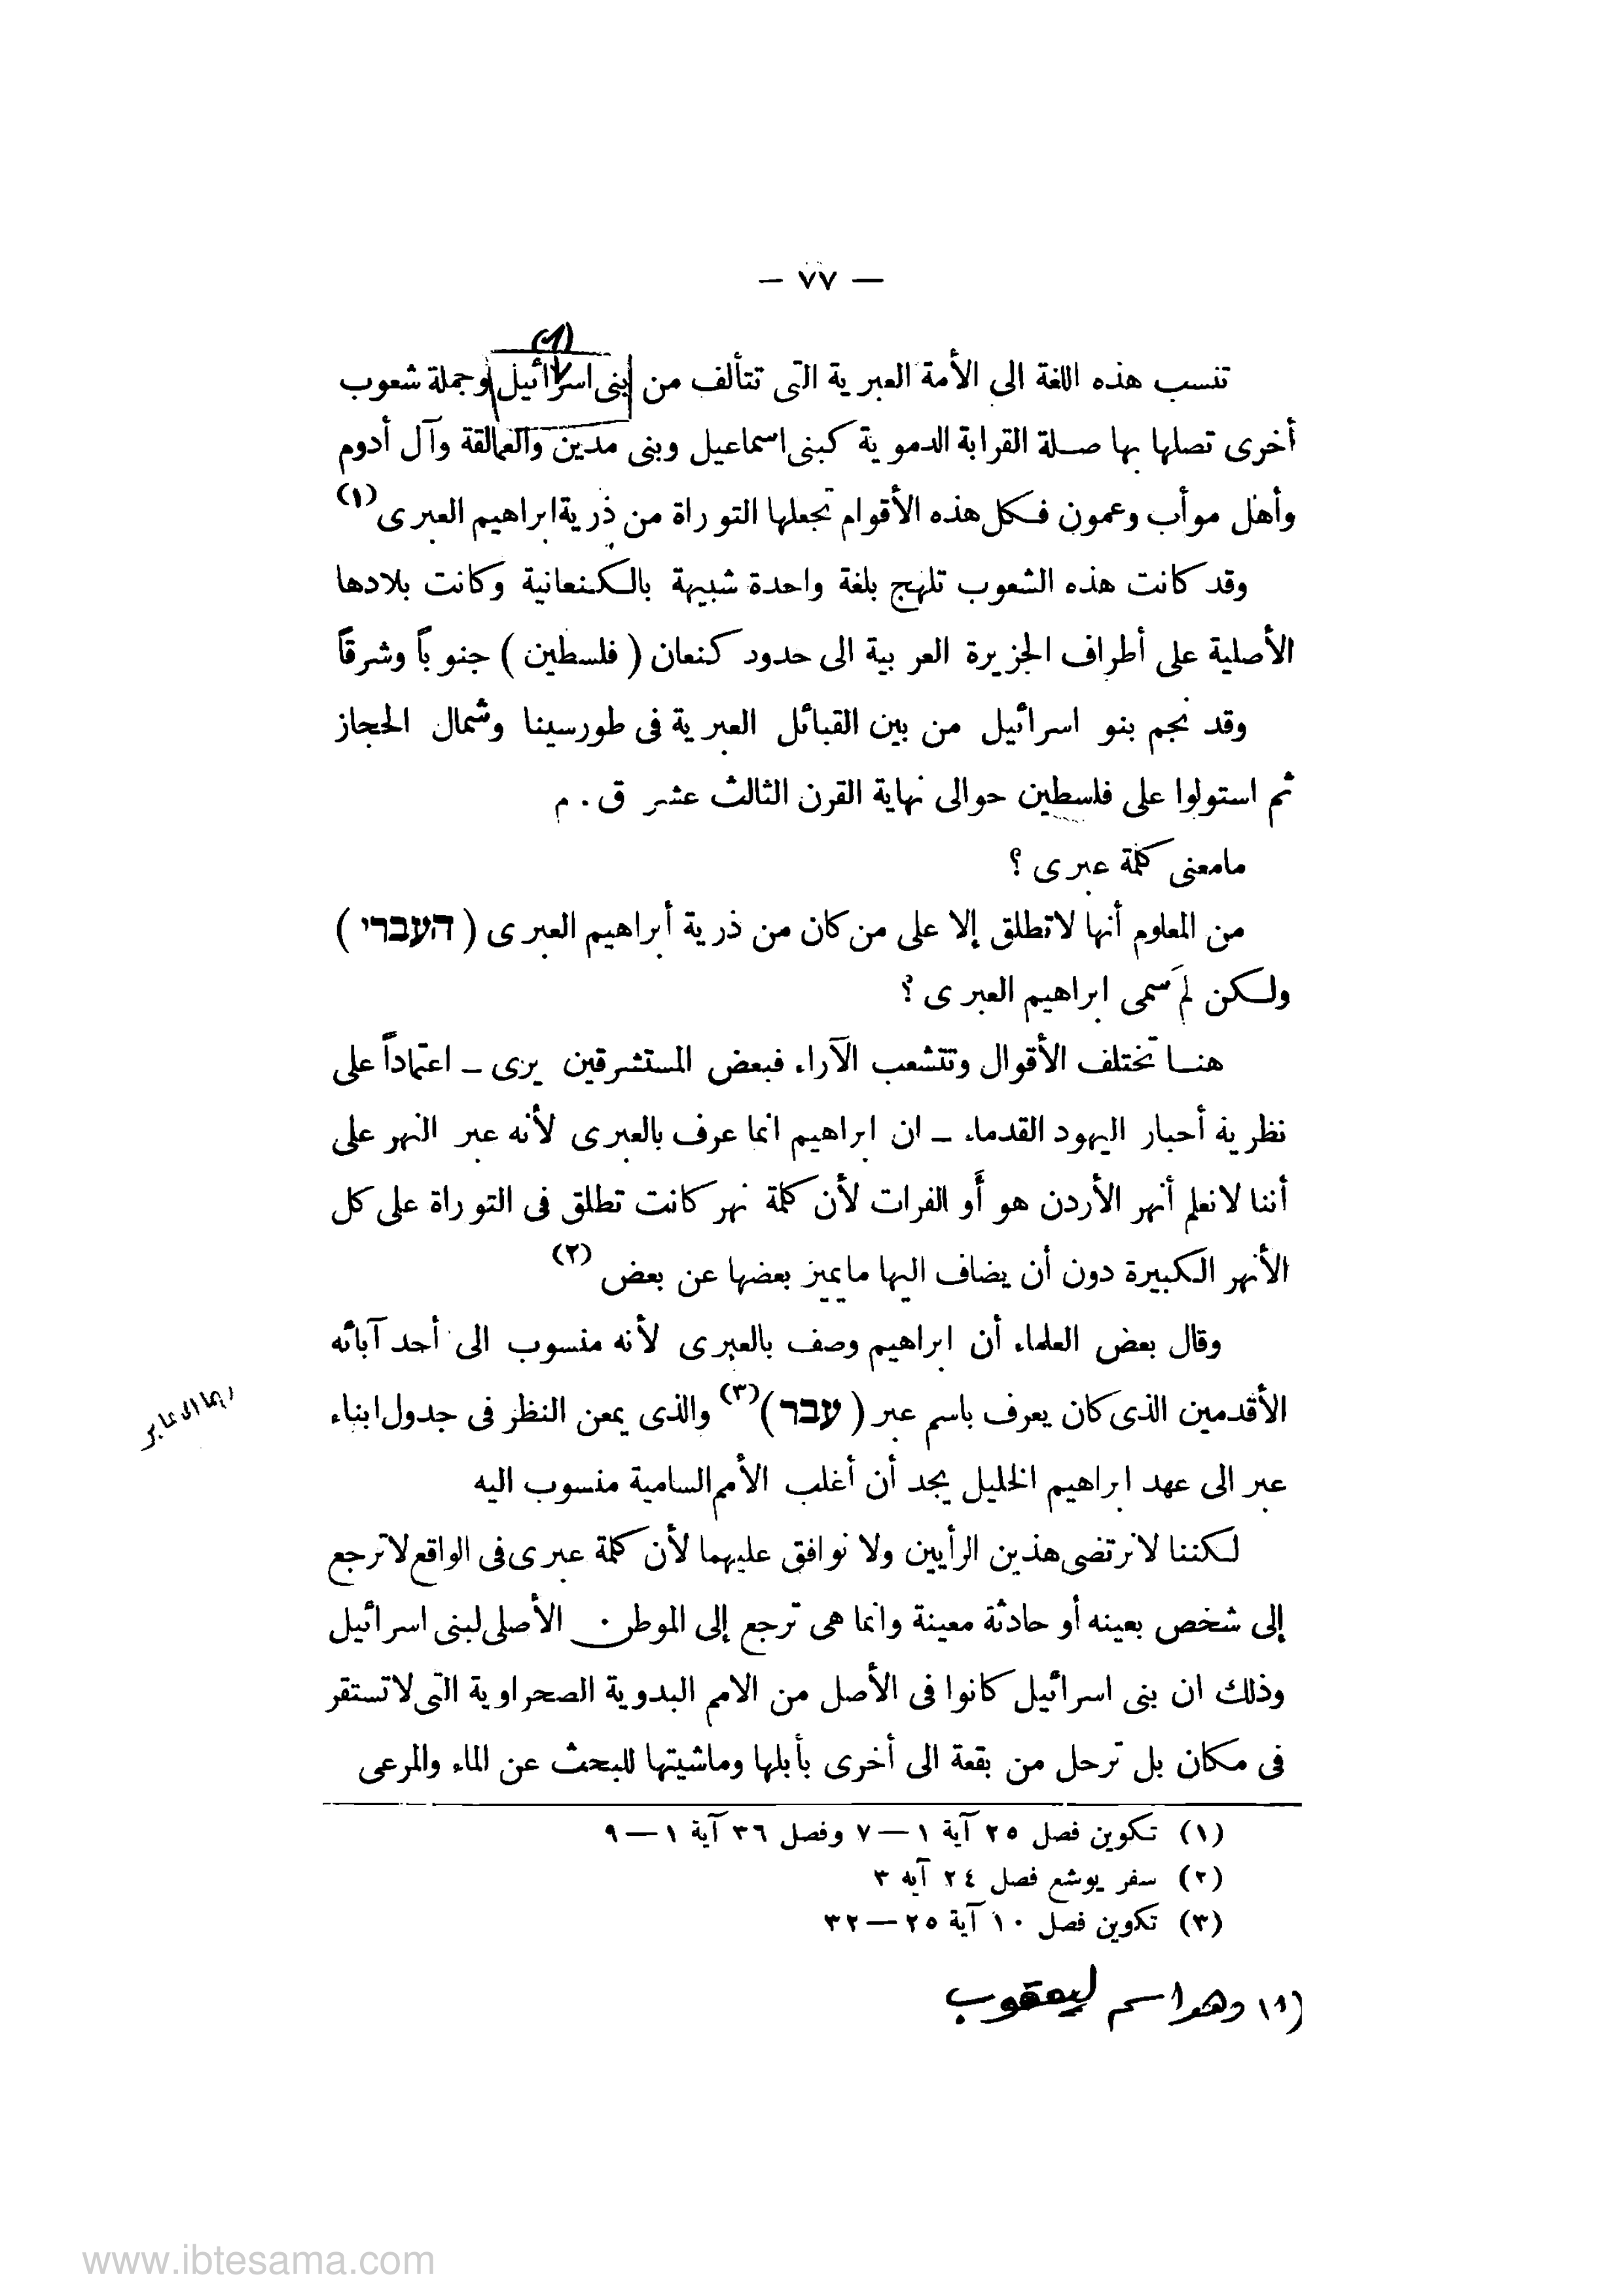 — ٧٧ —
(١)
تنسب هذه اللغة الى الأمة العبرية التى تتألف من بنى اسرائيل وجملة شعوب
أخرى تصلها بها صلة القرابة الدموية كبنى اسماعيل وبنى مدين والعمالقة وآل أدوم
وأهل موأب وعمون فكل هذه الأقوام تجعلها التوراة من ذرية ابراهيم العبرى (١)
وقد كانت هذه الشعوب تلهج بلغة واحدة شبيهة بالكنعانية وكانت بلادها
الأصلية على أطراف الجزيرة العربية الى حدود كنعان ( فلسطين ) جنوباً وشرقاً
وقد نجم بنو اسرائيل من بين القبائل العبرية فى طورسينا وشمال الحجاز
ثم استولوا على فلسطين حوالى نهاية القرن الثالث عشر ق . م
مامعنى كلمة عبرى ؟
من المعلوم أنها لاتطلق إلا على من كان من ذرية أبراهيم العبرى ( העברי )
ولكن لمَ سمى ابراهيم العبرى ؟
هنا تختلف الأقوال وتتشعب الآراء فبعض المستشرقين يرى ــ اعتماداً على
نظرية أحبار اليهود القدماء ــ ان ابراهيم انما عرف بالعبرى لأنه عبر النهر على
أننا لانعلم أنهر الأردن هو أَو الفرات لأن كلمة نهر كانت تطلق فى التوراة على كل
الأنهر الكبيرة دون أن يضاف اليها مايميز بعضها عن بعض (٢)
وقال بعض العلماء أن ابراهيم وصف بالعبرى لأنه منسوب الى أحد آبائه
الأقدمين الذى كان يعرف باسم عبر ( עבר ) (٣) والذى يمعن النظر فى جدول ابناء
ربما الى عابر
عبر الى عهد ابراهيم الخليل يجد أن أغلب الأمم السامية منسوب اليه
لكننا لانرتضى هذين الرأيين ولا نوافق عليهما لأن كلمة عبرى فى الواقع لاترجع
إلى شخص بعينه أو حادثة معينة وانما هى ترجع إلى الموطن الأصلى لبنى اسرائيل
وذلك ان بنى اسرائيل كانوا فى الأصل من الامم البدوية الصحراوية التى لاتستقر
فى مكان بل ترحل من بقعة الى أخرى بأبلها وماشيتها للبحث عن الماء والمرعى
(١) تكوين فصل ٢٥ آية ١ — ٧ وفصل ٣٦ آية ١ — ٩
(٢) سفر يوشع فصل ٢٤ آيه ٣
(٣) تكوين فصل ١٠ آية ٢٥ — ٣٢
(١) وهو اسم ليعقوب
www.ibtesama.com